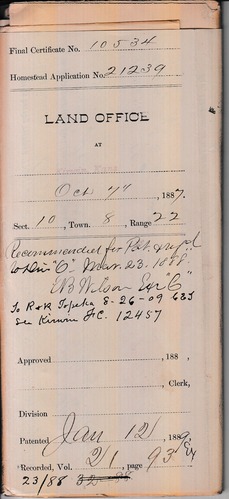 Final Certificate No. 10534
Homestead Application No. 21239
LAND OFFICE
AT
Oct 4th 1887.
Sect. 10, Town. 8, Range 22
Recommended for Pat. &
Div "C" Mar. 23. 1888.
EB Wilson Exr "C"
To R&R Topeka 8-26-09
see Kirwin F.C. 12457
Approved 188 ,
Clerk,
Division
Patented Jan 12 1889,
Recorded, Vol. 21, page 93
23/88